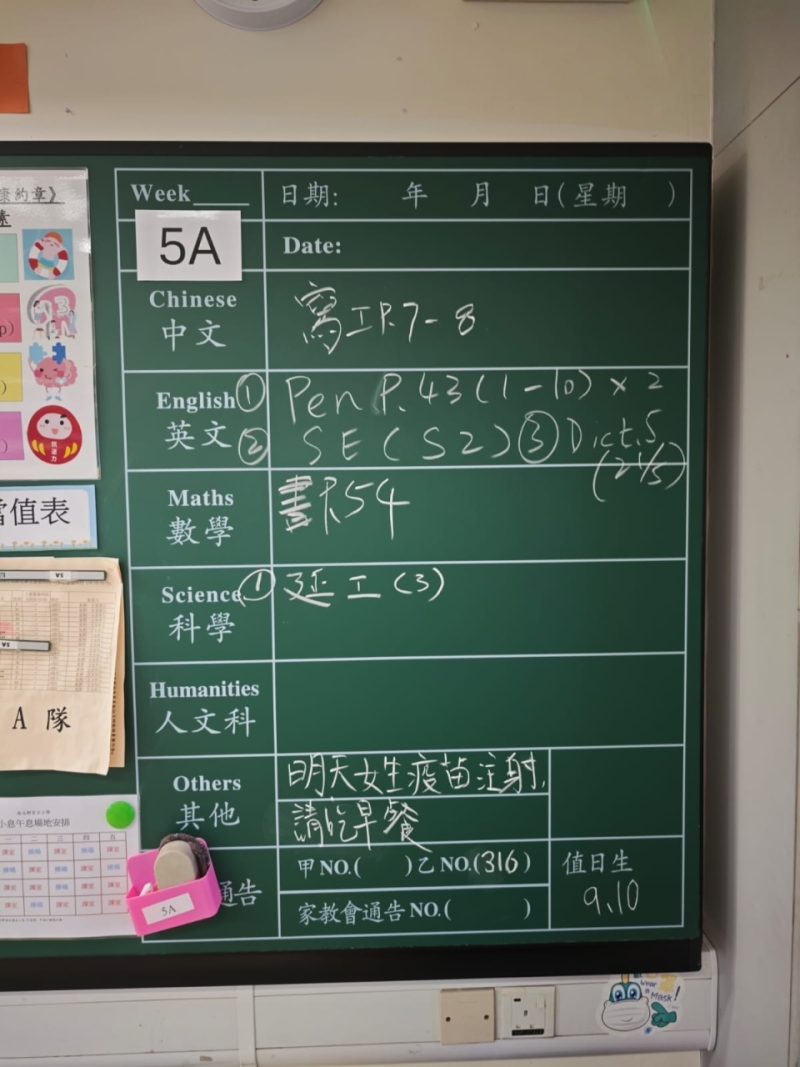 康約章》
Week
日期: 年 月 日(星期 )
5A
Date:
Chinese
中文
寫工P.7-8
English
英文
① Pen P.43(1-10)×2
② SE(S2) ③ Dict.5
(21/5)
Maths
數學
書P.54
Science
科學
① 延工(3)
Humanities
人文科
Others
其他
明天女生疫苗注射,
請吃早餐
通告
甲NO.( )乙NO.(316)
家教會通告NO.( )
值日生
9、10
5A
當值表
5A
5A
A 隊
小息午息場地安排
一 二 三 四 五
Wear
a
Mask!